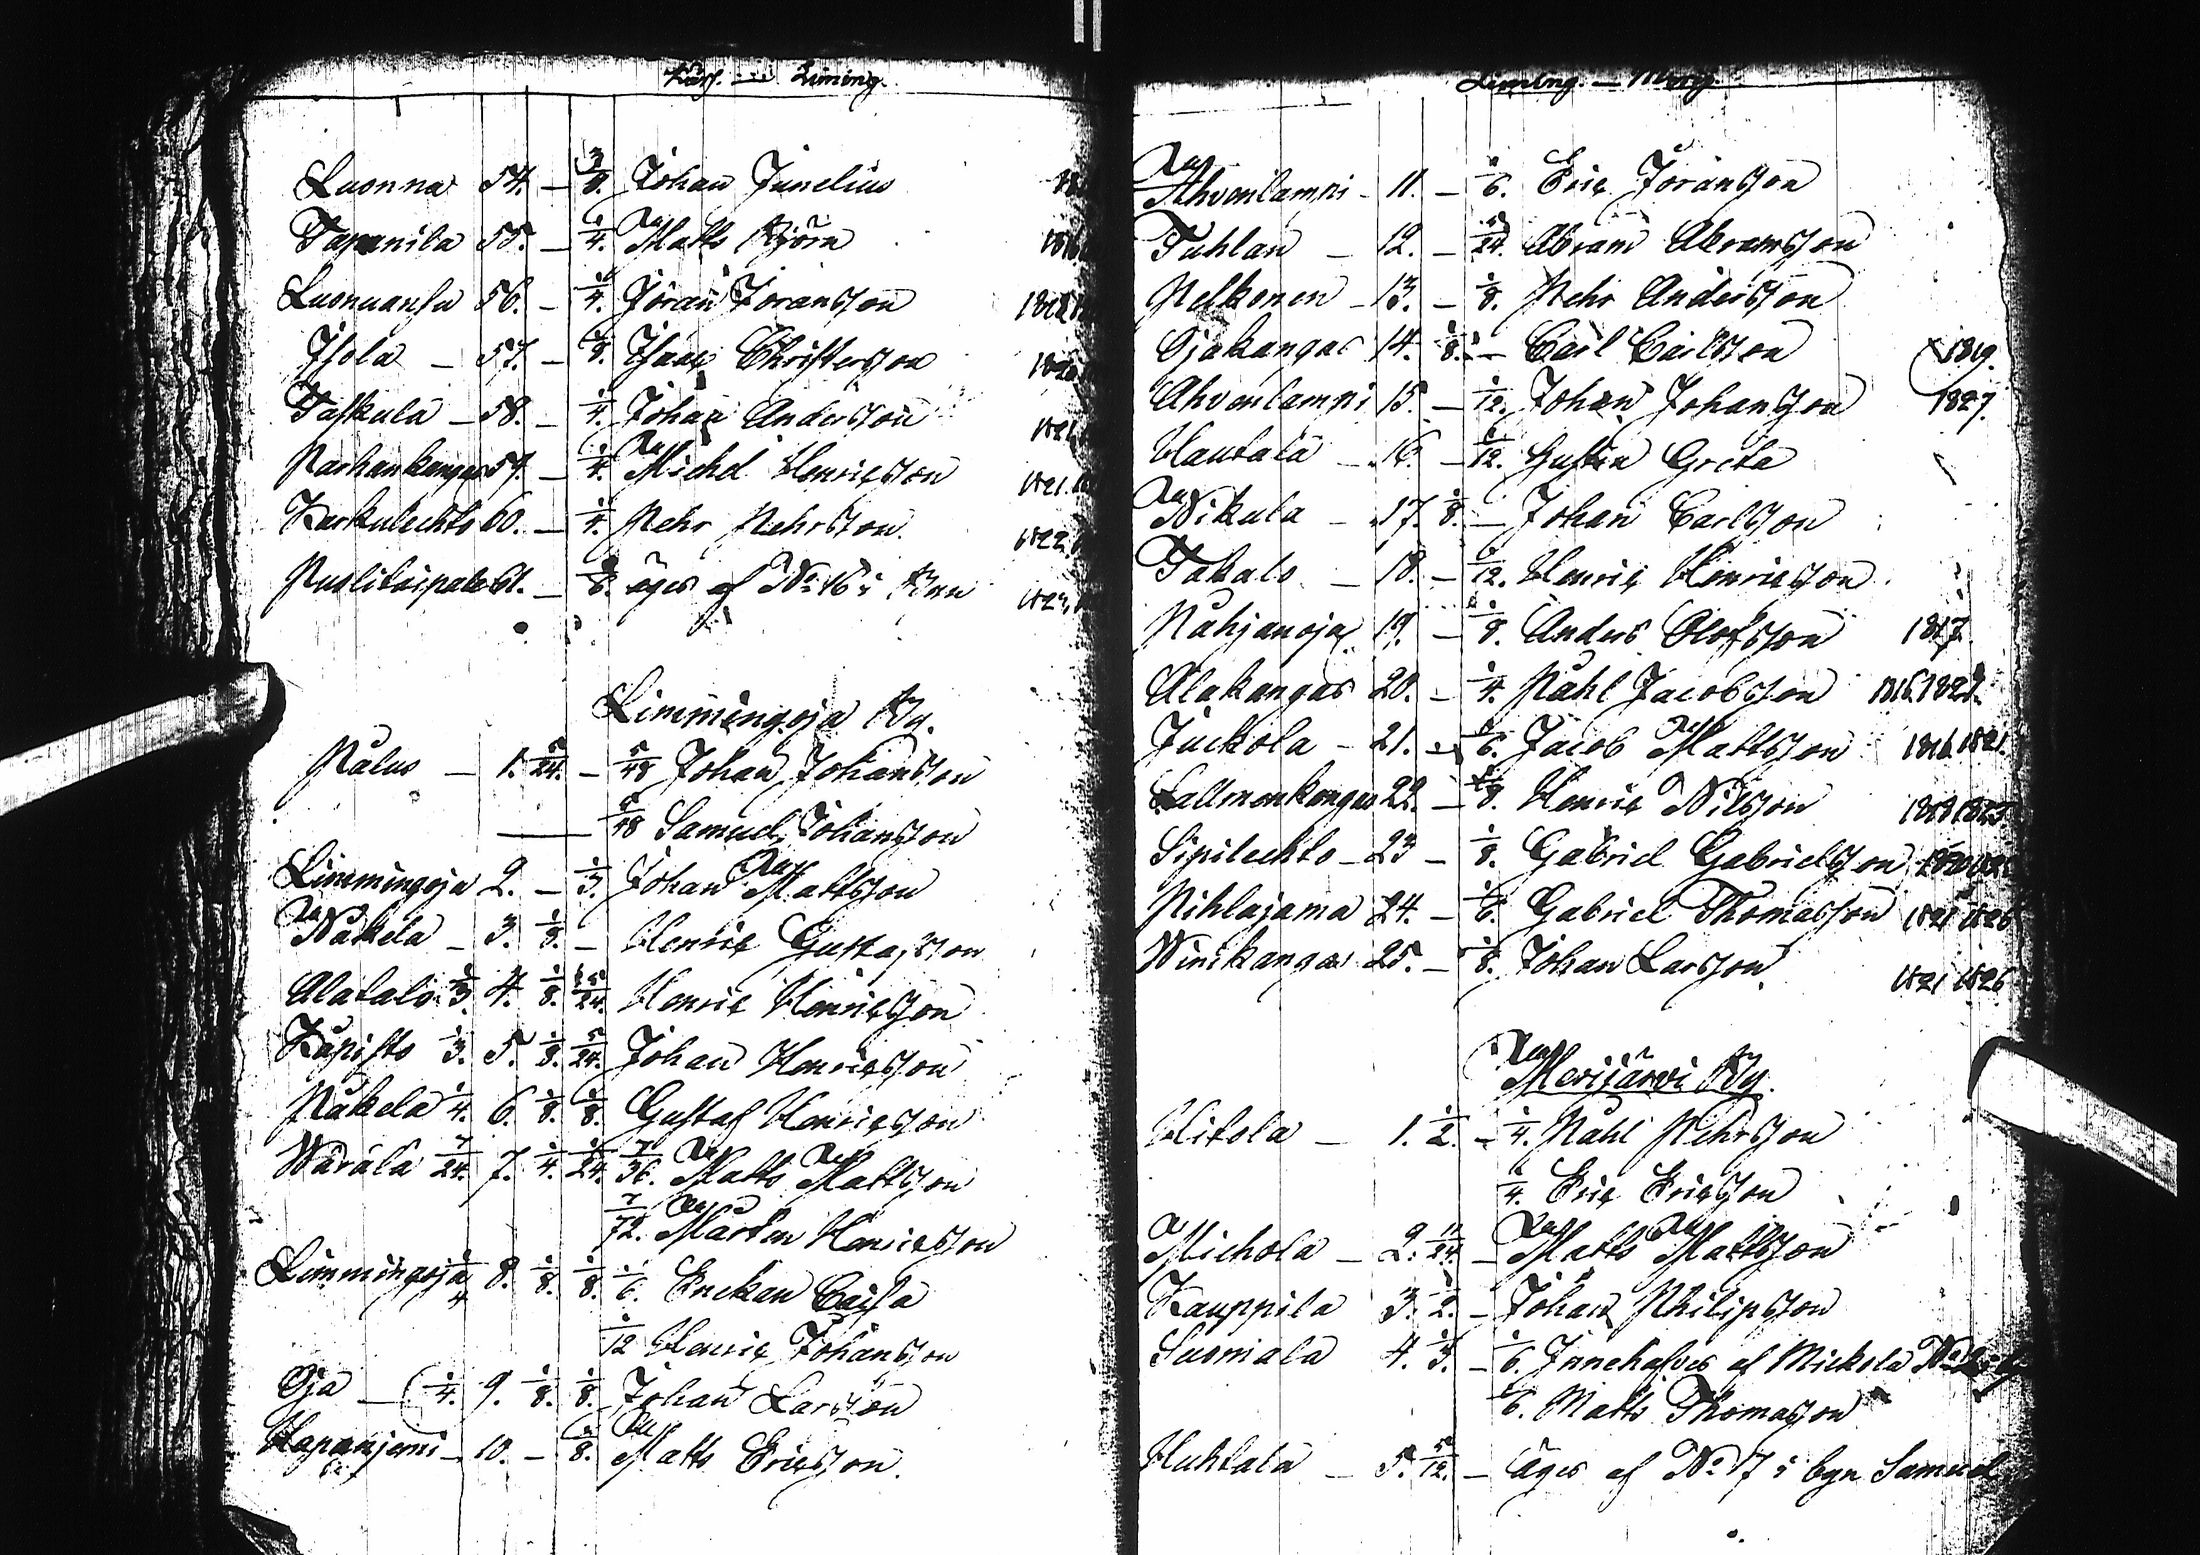 Liming.
Luonna 54. — 3/8. Johan Junelius
Tapanila 55. — 1/4. Matts Björn
56. — 1/4. Jöran Joransson
Isola — 57. — Isaac Christersson
Taskula — 58. — 1/4. Johan Andersson
Parhankangas 59. — 1/4. Michel Henricsson 1821.
Karkulechto 60. — 1/4. Pehr Pehrsson. 1822.
Puolitaipale 61. — äges af No 16 i Byn
Limmingoja By.
Pålus — 1. 5/24. — 5/48 Johan Johansson
—— 5/48 Samuel Johansson
Limmingoja 2. — 1/3. Johan Mattsson
3. 1/8. — Henric Gustafsson
Alatalo 1/3 4. 1/8. 5/24. Henric Henricsson
Käpisto 1/3. 5. 1/8. 5/24. Johan Henricsson
Påkela 1/4. 6. 1/8. 1/8. Gustaf Henricsson
Wärälä 7/24. 7. 1/4. 1/24. 7/36. Matts Mattsson
7/72. Mårten Henricsson
Limmingoja 1/4 8. 1/8. 1/8. 1/6. Enkan Caisa
1/12 Henric Johansson
Oja — 1/4. 9. 1/8. 1/8. Johan Larsson
Hapanjemi — 10. — 1/8. Matts Ericsson.
Limimg. — Merij.
Ahvenlampi — 11. — 1/6. Eric Jöransson
Tuhlan — 12. — 5/24. Abram Abramsson
Pelkonen — 13. — 1/8. Pehr Andersson
Ojakangas 14. 1/8. — Carl Carlsson 1819.
Ahvenlampi 15. — 1/12. Johan Johansson 1827.
Hautala — 16. — 1/12. Greta
Nikula — 17. 1/8. — Johan Carlsson
Takalo — 18. — 1/12. Henric Henricsson
Påhjanoja 19. — 1/8. Anders Olofsson 1817.
Alakangas 20. — 1/4. Påhl Jacobsson
Juckola — 21. — 1/6. Jacob Mattsson 1816. 1821.
Sallmenkangas 22. — 1/8. Henric Nilsson
Sipilechto — 23 — 1/8. Gabriel Gabrielsson
Pihlajama 24. — 1/6. Gabriel Thomasson 1821 1826
Winikangas 25. — 1/8. Johan Larsson 1821 1826
Merijärvi By.
Hitola — 1. 1/2. — 1/4. Påhl Pehrsson
1/4. Eric Ericsson
Michola — 2. 11/24. — Matts Mattsson
Kauppila 3. 1/2. — Johan Philipsson
Suomala 4. 1/3. — 1/6. Innehafves af Mickola
1/6. Matts Thomasson
Huhtala — 5. 5/12. — äges af No 17 i byn Samuel